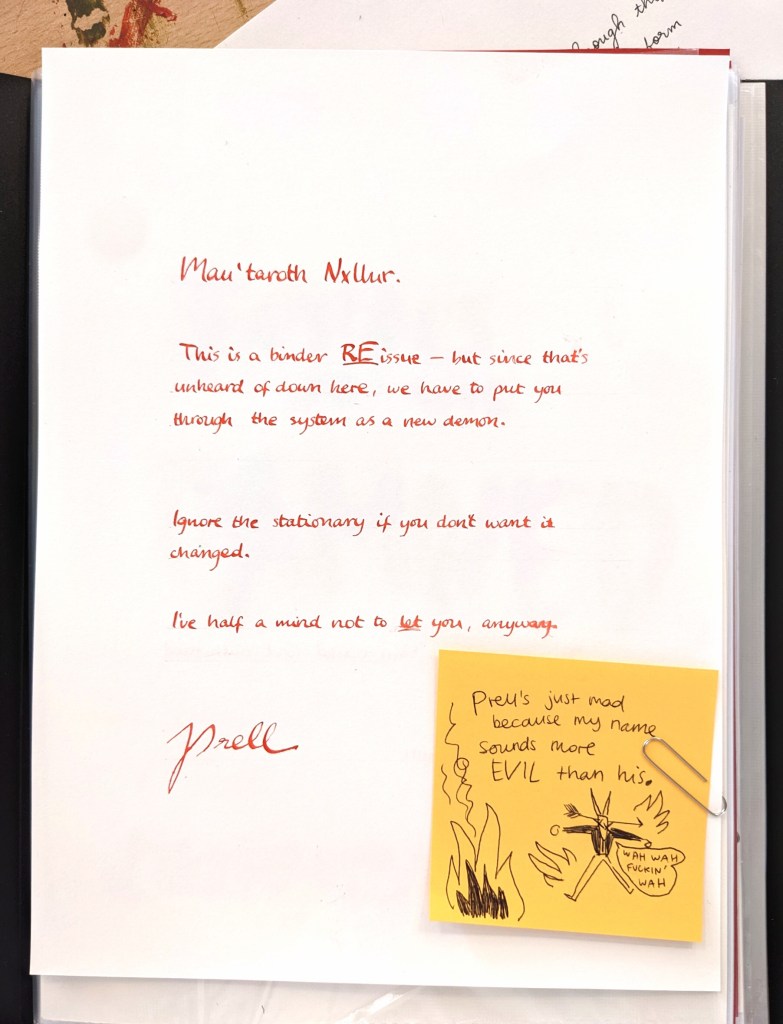 through this
form
Mau'taroth Nxllur.
This is a binder REissue – but since that's
unheard of down here, we have to put you
through the system as a new demon.
Ignore the stationary if you don't want it
changed.
I've half a mind not to let you, anyway.
Prell
Prell's just mad
because my name
sounds more
EVIL than his.
WAH WAH
FUCKIN'
WAH